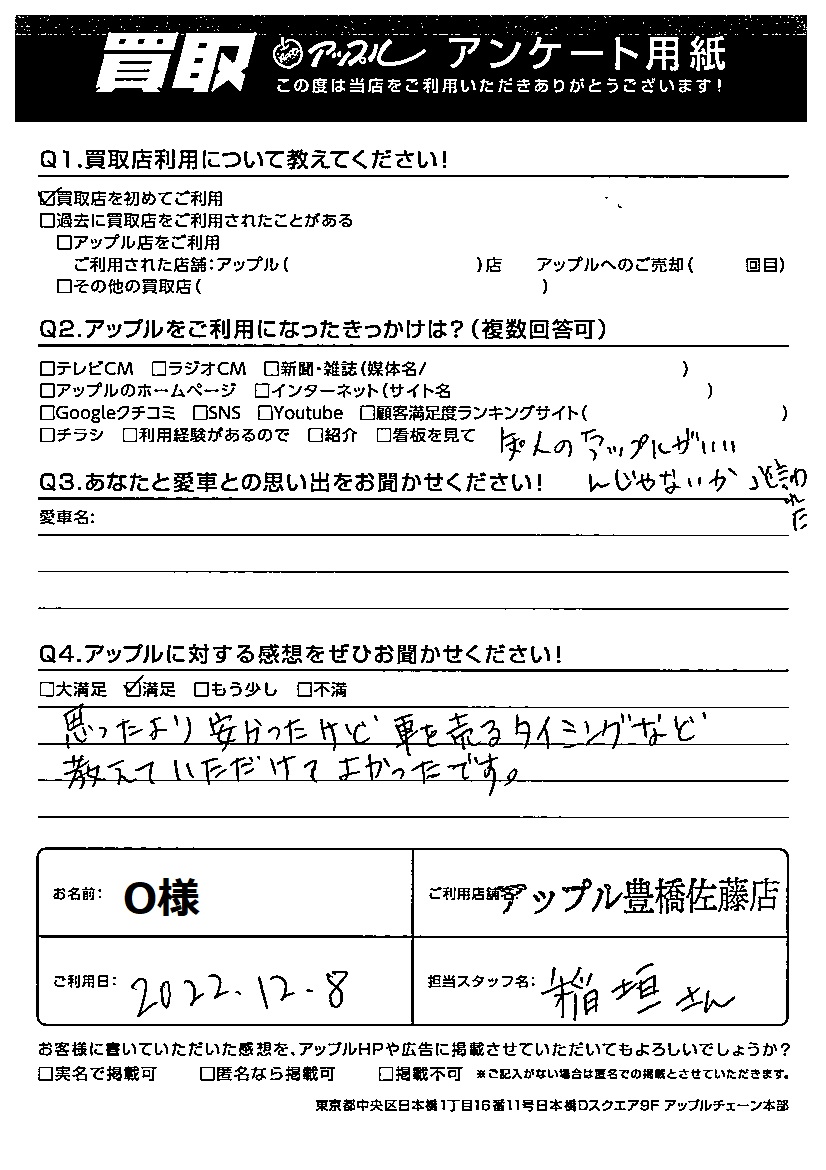 買取 アップル アンケート用紙
この度は当店をご利用いただきありがとうございます!
Q1.買取店利用について教えてください!
☑買取店を初めてご利用
□過去に買取店をご利用されたことがある
□アップル店をご利用
ご利用された店舗:アップル( )店 アップルへのご売却( 回目)
□その他の買取店( )
Q2.アップルをご利用になったきっかけは?(複数回答可)
□テレビCM □ラジオCM □新聞・雑誌(媒体名/ )
□アップルのホームページ □インターネット(サイト名 )
□Googleクチコミ □SNS □Youtube □顧客満足度ランキングサイト( )
□チラシ □利用経験があるので □紹介 □看板を見て
知人のアップルがいい
んじゃないか」と言われた
Q3.あなたと愛車との思い出をお聞かせください!
愛車名:
Q4.アップルに対する感想をぜひお聞かせください!
□大満足 ☑満足 □もう少し □不満
思ったより安かったけど車を売るタイミングなど
教えていただけてよかったです。
お名前: O様
ご利用店舗名: アップル豊橋佐藤店
ご利用日: 2022.12.8
担当スタッフ名: 稲垣さん
お客様に書いていただいた感想を、アップルHPや広告に掲載させていただいてもよろしいでしょうか?
□実名で掲載可 □匿名なら掲載可 □掲載不可 ※ご記入がない場合は匿名での掲載とさせていただきます。
東京都中央区日本橋1丁目16番11号日本橋Dスクエア9F アップルチェーン本部